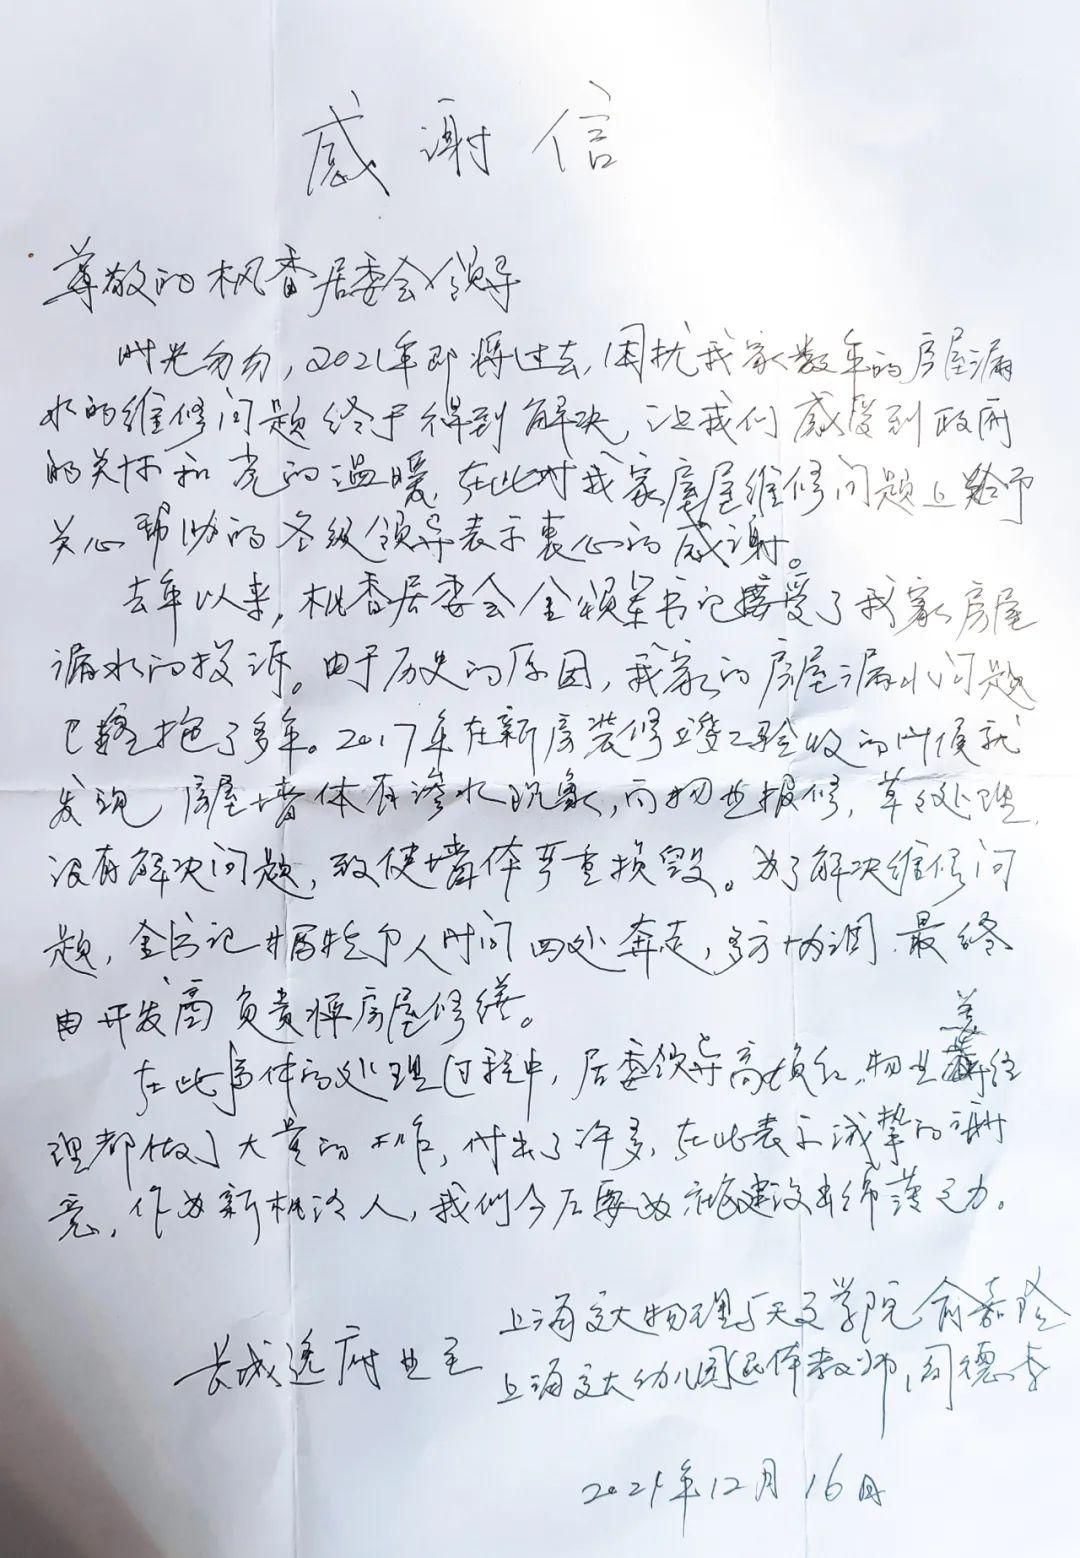 感谢信
尊敬的枫香居委会领导
时光匆匆,2021年即将过去,困扰我家数年的房屋漏
水的维修问题终于得到解决,让我们感受到政府
的关怀和党的温暖,在此对我家房屋维修问题上给予
关心帮助的各级领导表示衷心的感谢。
去年以来,枫香居委会金书记接受了我家房屋
漏水的投诉。由于历史的原因,我家的房屋漏水问题
已拖了多年。2017年在新房装修竣工验收的时候就
发现房屋墙体有渗水现象,向物业报修,草草处理,
没有解决问题,致使墙体严重损毁。为了解决维修问
题,金书记牺牲个人时间四处奔走,多方协调,最终
由开发商负责将房屋修缮。
在此事体的处理过程中,居委领导高,物业姜经
理都做了大量的工作,付出了许多,在此表示诚挚的谢
意,作为新枫泾人,我们今后要为社区建设出绵薄之力。
上海交大物理与天文学院俞嘉隆
长城逸府业主
上海交大幼儿园退休教师,周德
2021年12月16日